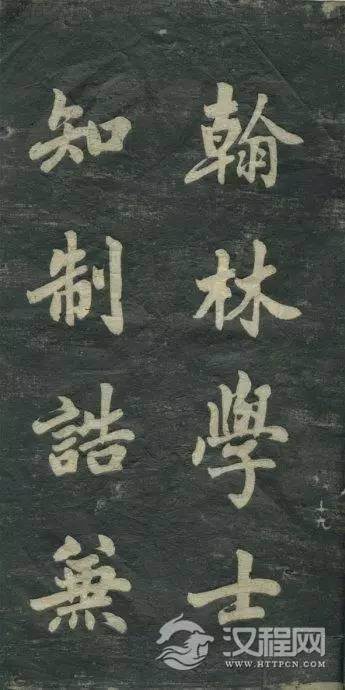 翰林學士
知制誥兼
十九
汉程网
WWW.HTTPCN.COM